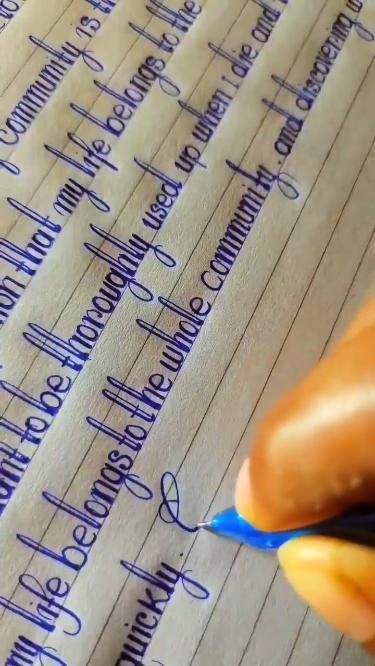 community is
ion that my life belongs to the
ant to be thoroughly used up when i die and
my life belongs to the whole community. and discovering
quickly.